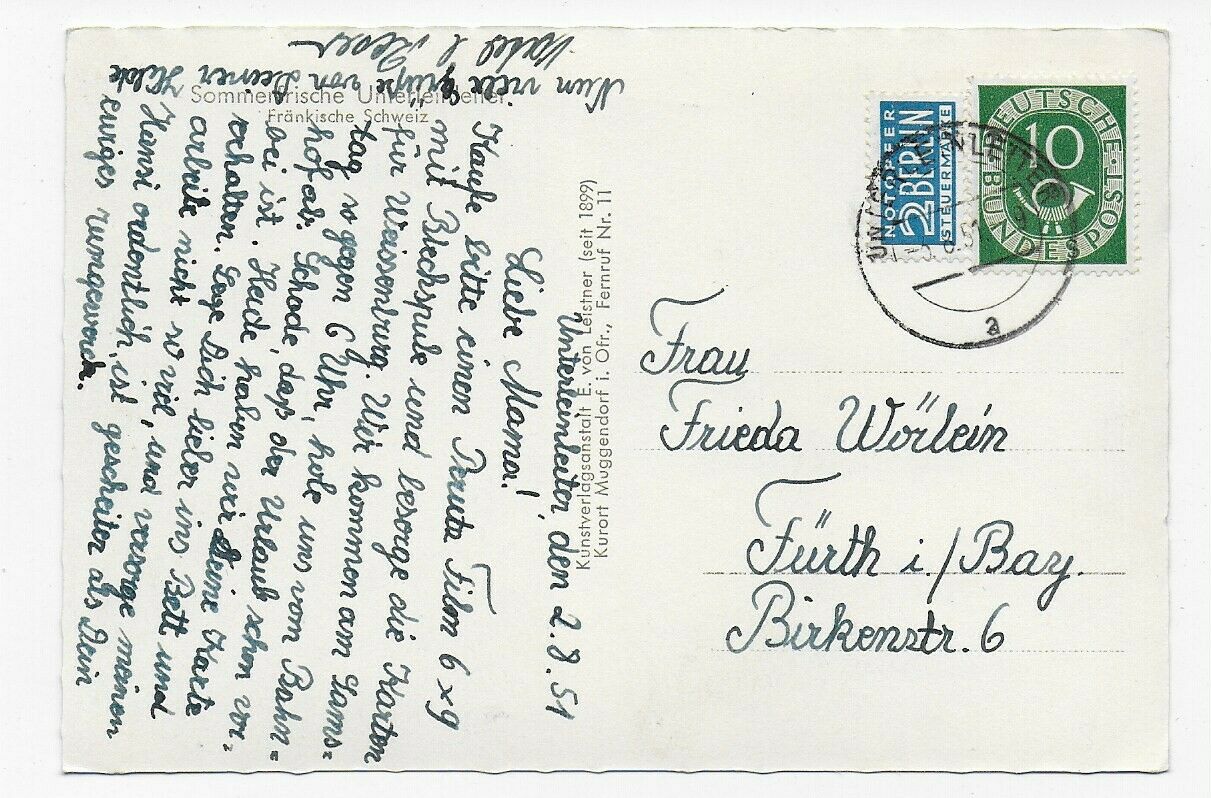 Sommerfrische Unterleinleiter
Fränkische Schweiz
Unterleinleiter, den 2.8.51
Liebe Mama!
Kaufe bitte einen Peruta Film 6x9
mit Blechspule und besorge die Karten
für Weissenburg. Wir kommen am Sams=
tag so gegen 6 Uhr, hole uns vom Bahn=
hof ab. Schade, daß der Urlaub schon vor=
bei ist. Heute haben wir Deine Karte
erhalten. Lege Dich lieber ins Bett und
arbeite nicht so viel, und versorge meinen
Hansi ordentlich, ist gescheiter als Dein
ewiges rumgewerch.
Nun viele Grüße von Deiner Hilde
Kunstverlagsanstalt E. von Leistner (seit 1899)
Kurort Muggendorf i. Ofr., Fernruf Nr. 11
NOTOPFER
2 BERLIN
STEUERMARKE
DEUTSCHE BUNDESPOST
10
UNTERLEINLEITER
a
Frau
Frieda Wörlein
Fürth i./Bay.
Birkenstr. 6